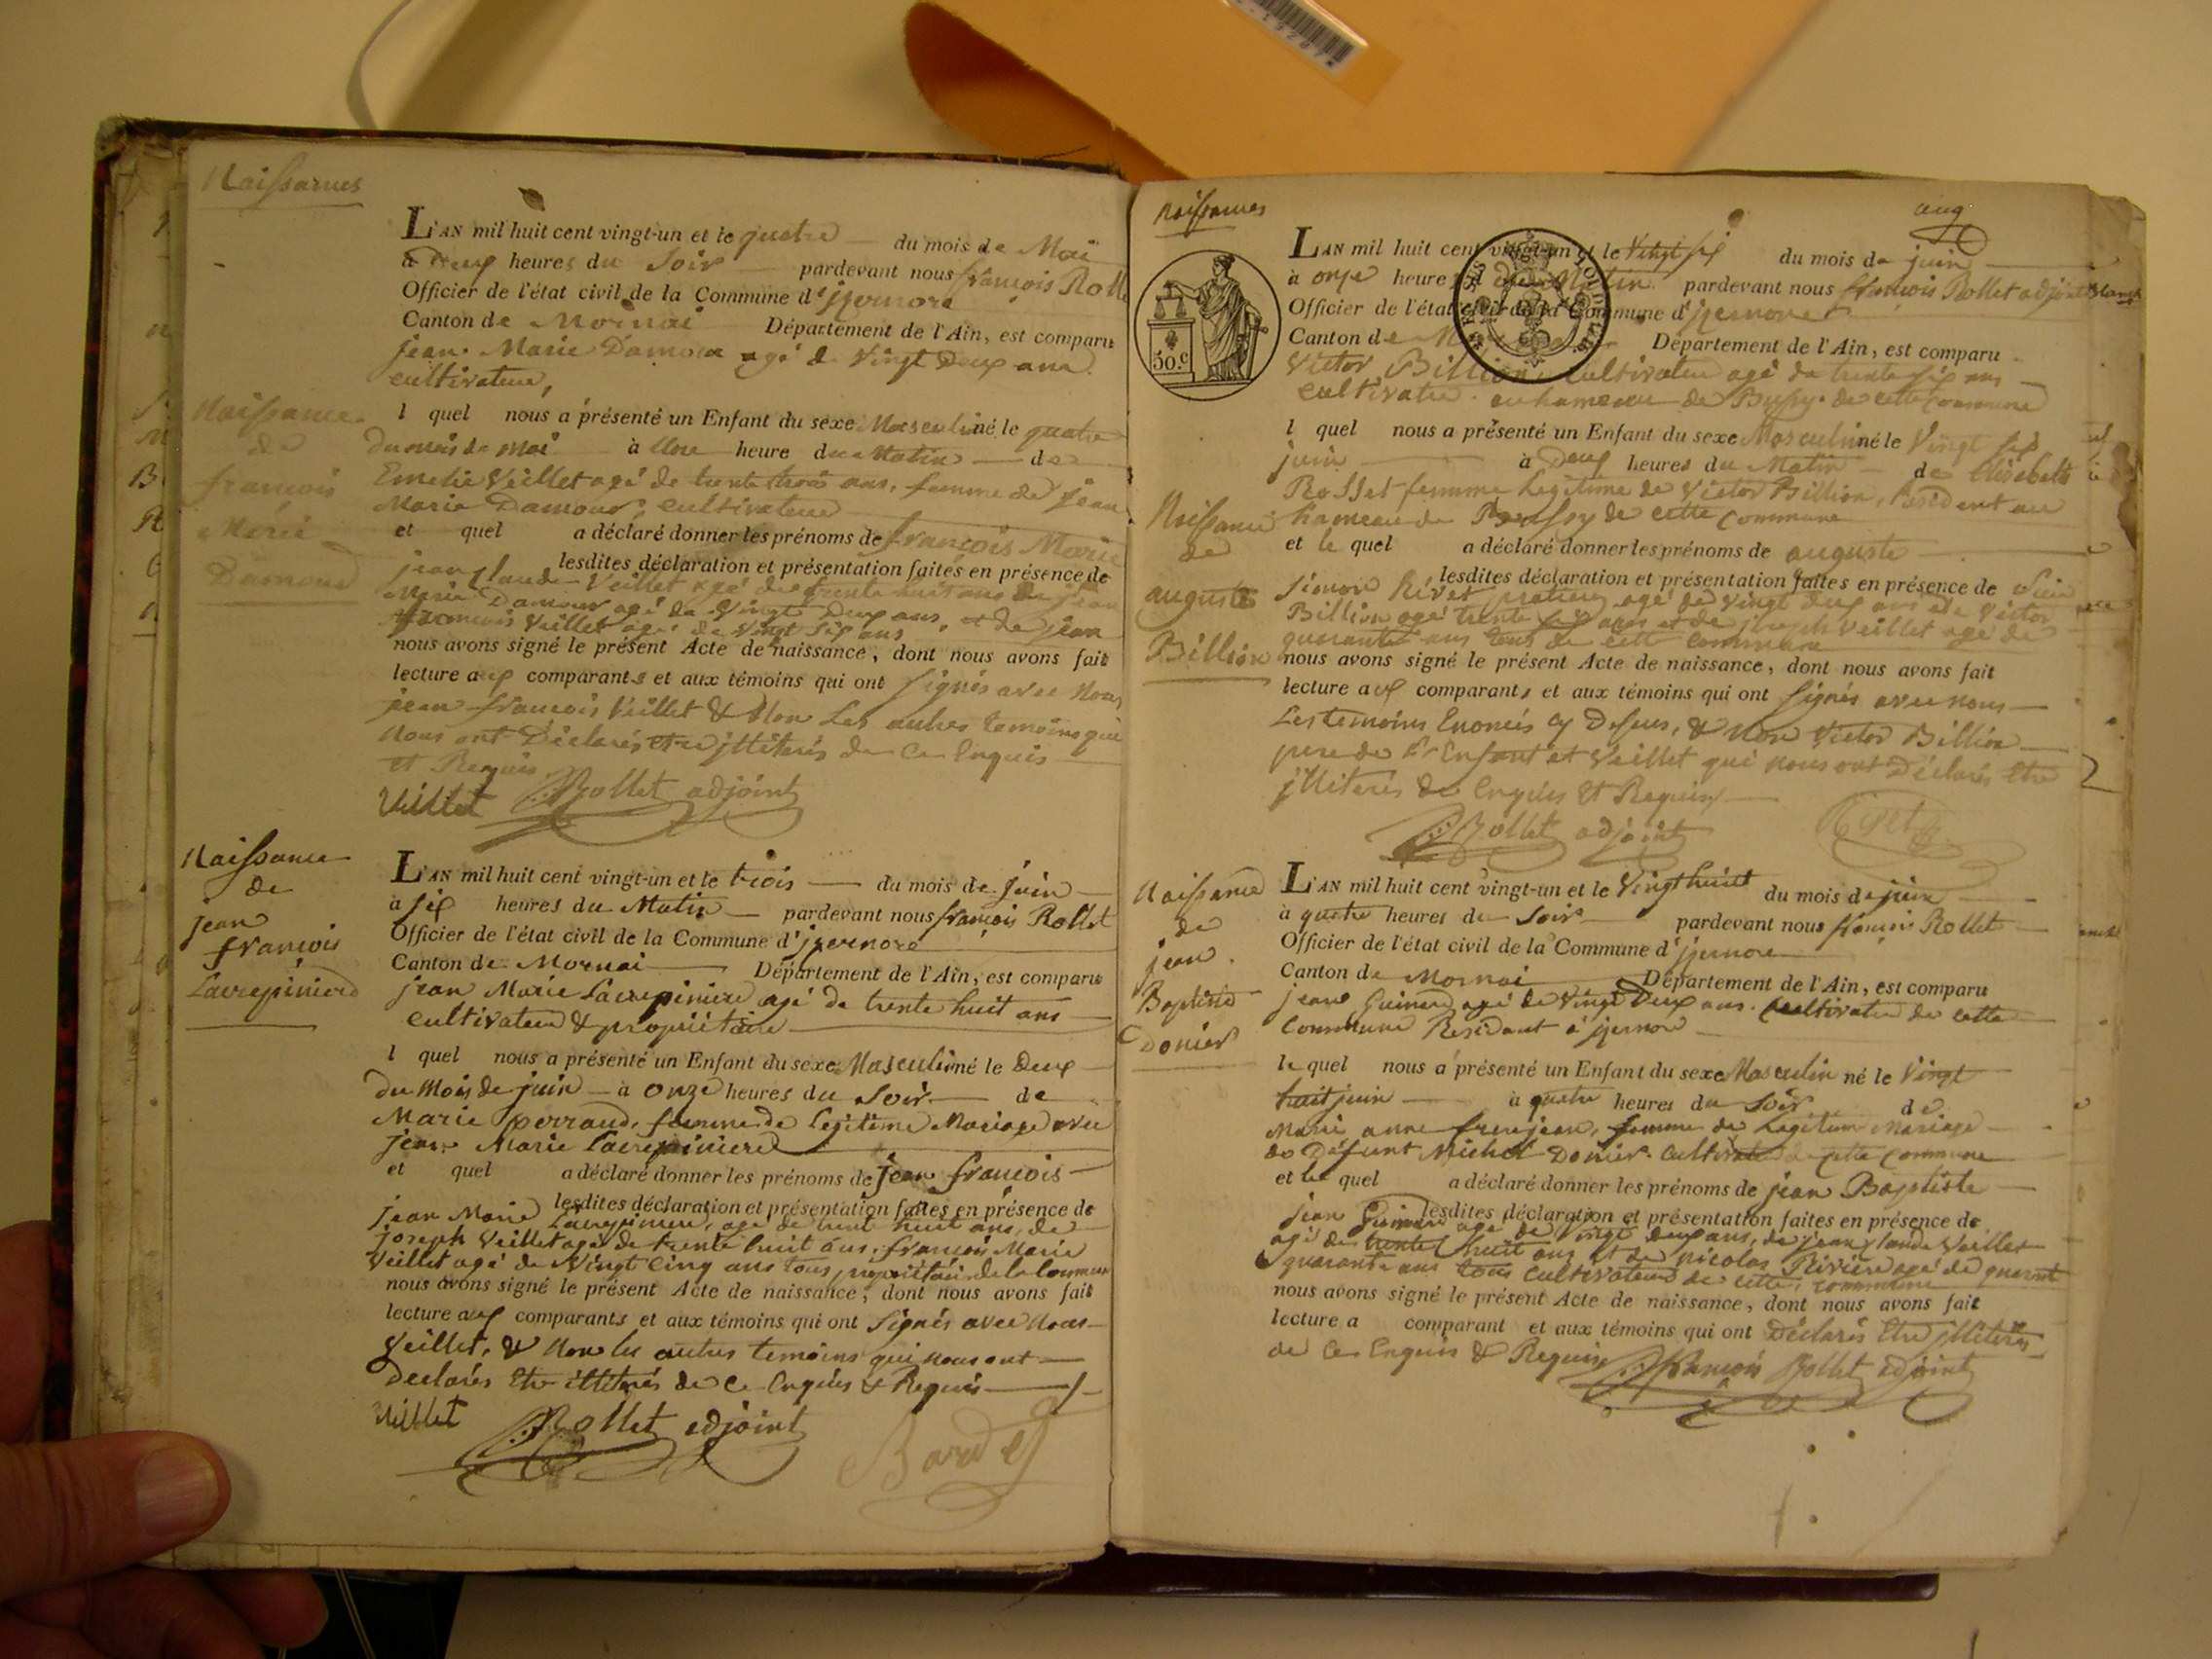 Naissances
L'AN mil huit cent vingt-un et le quatre du mois de Mai
à deux heures du Soir pardevant nous françois Rollet
Officier de l'état civil de la Commune d'jzernore
Canton de Mornai Département de l'Ain, est comparu
jean Marie Damour agé de Vingt Deux ans
cultivateur,
Naissance
de
françois
Marie
Damour
l quel nous a présenté un Enfant du sexe Masculin né le quatre
du mois de Mai à Une heure du Matin de
Emelie Veillet agé de trente trois ans, femme de jean
Marie Damour, cultivateur
et quel a déclaré donner les prénoms de françois Marie
lesdites déclaration et présentation faites en présence de
jean Claude Veillet agé de trente huit ans de jean
Marie Damour agé de Vingt Deux ans, et de jean
françois Veillet agé de Vingt Six ans
nous avons signé le présent Acte de naissance, dont nous avons fait
lecture aux comparants et aux témoins qui ont Signés avec Nous
jean françois Veillet & Non Les autres temoins qui
Nous ont Déclarés etre jlliterés de Ce Enquis
et Requis
Veillet Rollet adjoint
Naissance
de
jean
françois
Lacrepiniere
L'AN mil huit cent vingt-un et le trois du mois de juin
à six heures du Matin pardevant nous françois Rollet
Officier de l'état civil de la Commune d'jzernore
Canton de Mornai Département de l'Ain, est comparu
jean Marie Lacrepiniere agé de trente huit ans
cultivateur & propriétaire
l quel nous a présenté un Enfant du sexe Masculin né le Deux
du Mois de juin à onze heures du Soir de
Marie perraud, femme de Legitime Mariage avec
jean Marie Lacrepiniere
et quel a déclaré donner les prénoms de jean françois
lesdites déclaration et présentation faites en présence de
jean Marie Lacrepiniere, agé de trente huit ans, de
joseph Veillet agé de trente huit ans, françois Marie
Veillet agé de Vingt Cinq ans tous propriétaires de la Commune
nous avons signé le présent Acte de naissance, dont nous avons fait
lecture aux comparants et aux témoins qui ont Signés avec Nous
Veillet, & Non les autres temoins qui nous ont
Declarés Etre illiterés de Ce Enquis & Requis
Veillet Rollet adjoint
Naissances
aug
50.c
L'AN mil huit cent vingt-un et le Vingt six du mois de juin
à onze heures du Matin pardevant nous françois Rollet adjoint
Officier de l'état civil de la Commune d'jzernore
Canton de Département de l'Ain, est comparu
Victor Billion, Cultivateur agé de trente six ans
cultivateur au hameau de Bussy de cette Commune
l quel nous a présenté un Enfant du sexe Masculin né le Vingt six
juin à Deux heures du Matin de Elisabeth
Rosset femme Legitime de Victor Billion, Resident au
hameau de Bussy de cette Commune
Naissance
de
auguste
Billion
et le quel a déclaré donner les prénoms de auguste
lesdites déclaration et présentation faites en présence de
Simon Rivet agé de Vingt Deux ans de Victor
Billion agé trente six ans et de joseph Veillet agé de
quarante ans tous de cette Commune
nous avons signé le présent Acte de naissance, dont nous avons fait
lecture aux comparants et aux témoins qui ont Signés avec nous
Les temoins Enoncés cy Dessus, & Non Victor Billion
pere de Enfant et Veillet qui nous ont Déclarés Etre
jlliterés de Enquis et Requis
Rollet adjoint
Naissance
de
jean
Baptiste
Donier
L'AN mil huit cent vingt-un et le Vingt huit du mois de juin
à quatre heures du Soir pardevant nous françois Rollet
Officier de l'état civil de la Commune d'jzernore
Canton de Mornai Département de l'Ain, est comparu
jean Guinard agé de Vingt Deux ans. Cultivateur de cette
Commune Residant à jzernore
le quel nous a présenté un Enfant du sexe Masculin né le Vingt
huit juin à quatre heures du Soir de
Marie anne frerejean, femme de Legitime Mariage
de Défunt Michel Donier. Cultivateur de Cette Commune
et le quel a déclaré donner les prénoms de jean Baptiste
lesdites déclaration et présentation faites en présence de
jean Guinard agé de Vingt deux ans, de jean Claude Veillet
agé de trente huit ans et de nicolas Riviere agé de quarante
quarante ans tous Cultivateurs de cette Commune
nous avons signé le présent Acte de naissance, dont nous avons fait
lecture a comparant et aux témoins qui ont Déclarés Etre jlliterés
de Ce Enquis & Requis françois Rollet adjoint